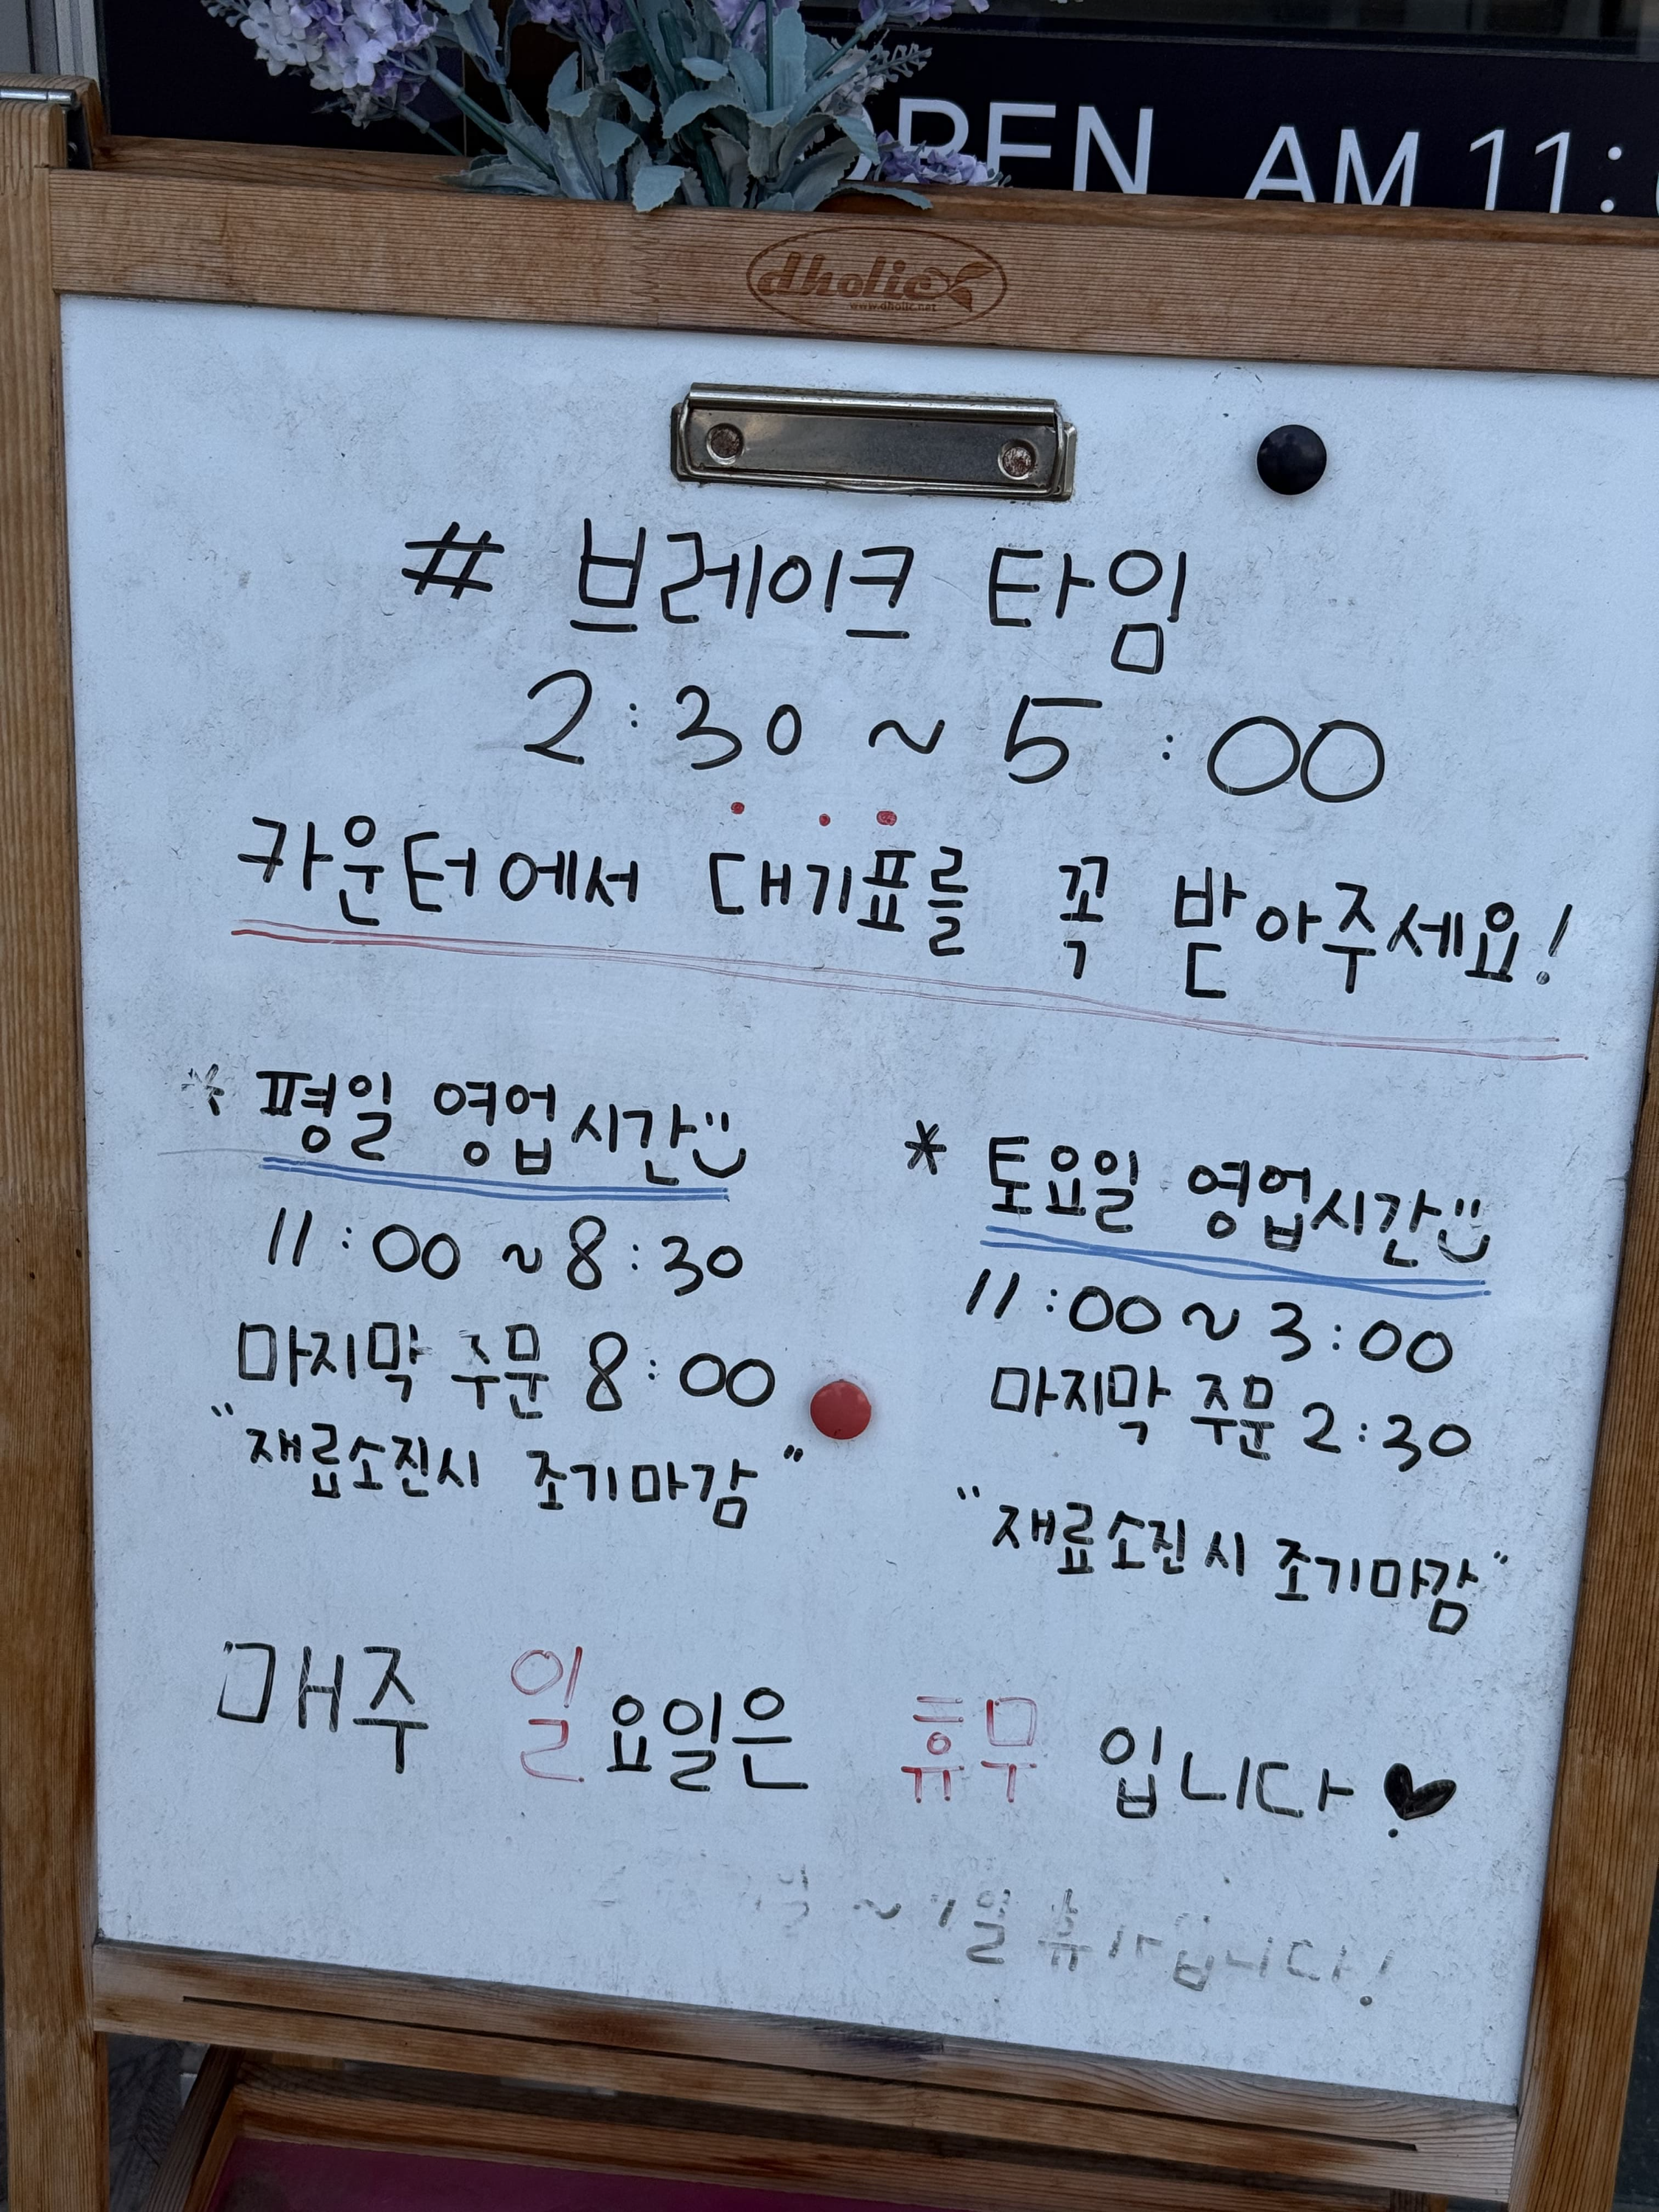 OPEN AM 11:
dholic
www.dholic.net
# 브레이크 타임
2:30 ~ 5:00
카운터에서 대기표를 꼭 받아주세요!
* 평일 영업시간
11:00 ~ 8:30
마지막 주문 8:00
"재료소진시 조기마감"
* 토요일 영업시간
11:00 ~ 3:00
마지막 주문 2:30
"재료소진시 조기마감"
매주 일요일은 휴무 입니다♥
~ 일 휴 입니다!